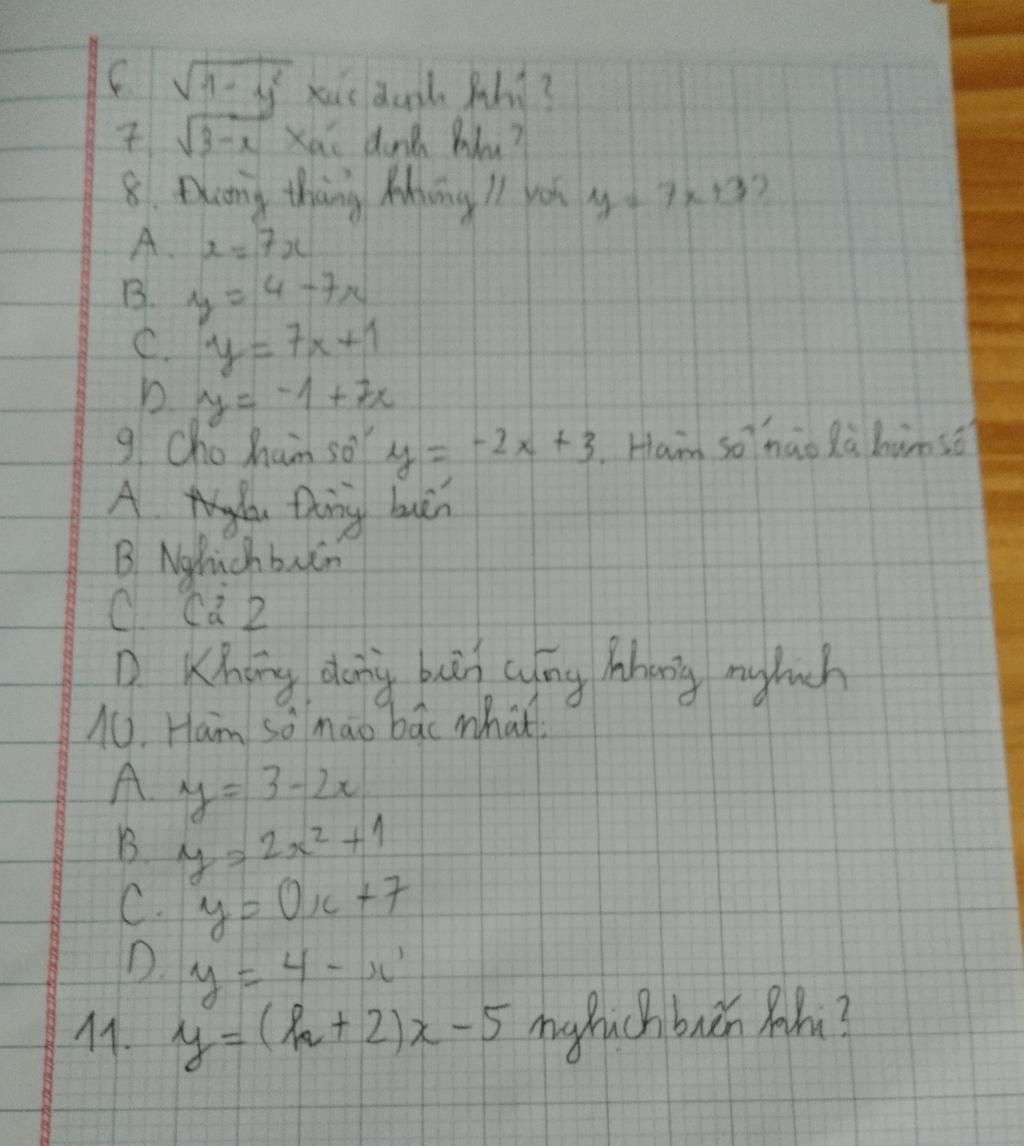 6. √1-y xác định khi?
7. √3-x xác định khi?
8. Đường thẳng không // với y = 7x+3?
A. x=7x
B. y = 4-7x
C. y = 7x+1
D. y = -1+7x
9. Cho hàm số y = -2x + 3. Hàm số nào là hàm số
A. Đồng biến
B. Nghịch biến
C. Cả 2
D. Không đồng biến cũng không nghịch
10. Hàm số nào bậc nhất:
A. y = 3-2x
B. y = 2x² +1
C. y = 0x +7
D. y = 4 - x
11. y = (k+2)x - 5 nghịch biến khi?